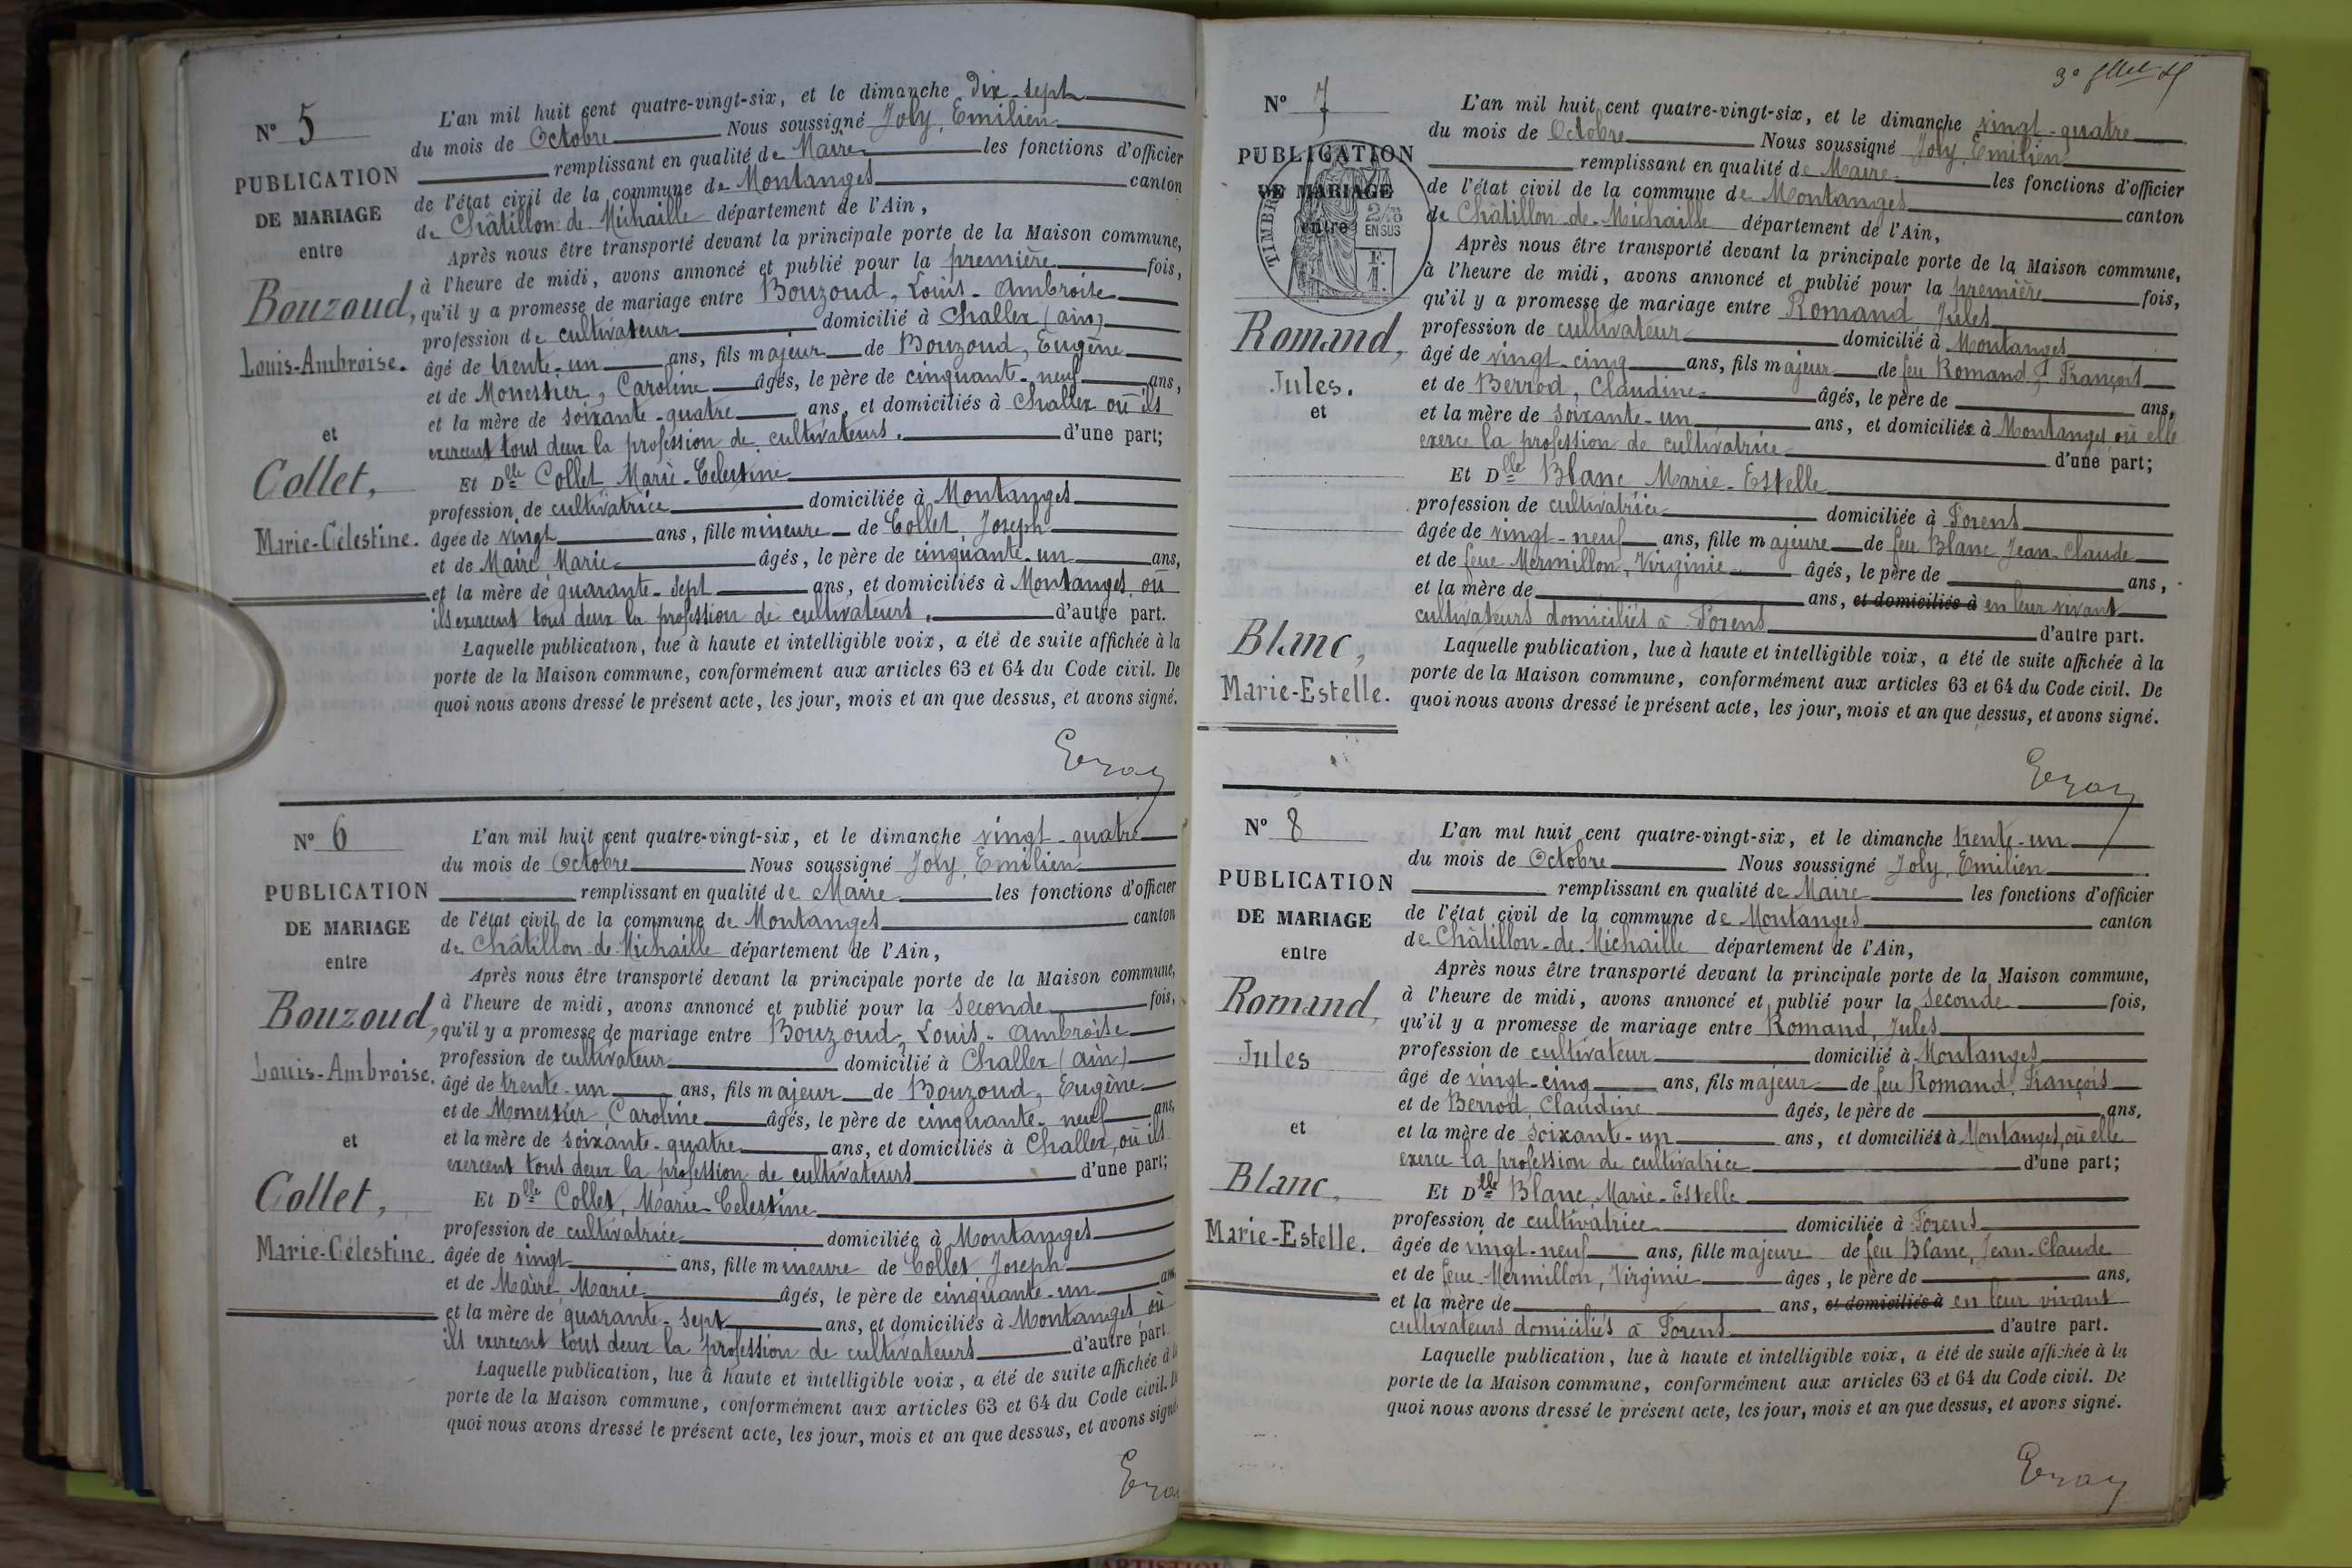 N° 5
PUBLICATION
DE MARIAGE
entre
Bouzoud,
Louis-Ambroise.
et
Collet,
Marie-Célestine.
L'an mil huit cent quatre-vingt-six, et le dimanche dix-sept
du mois de Octobre Nous soussigné Joly, Emilien
remplissant en qualité de Maire les fonctions d'officier
de l'état civil de la commune de Montanges canton
de Châtillon-de-Michaille département de l'Ain,
Après nous être transporté devant la principale porte de la Maison commune,
à l'heure de midi, avons annoncé et publié pour la première fois,
qu'il y a promesse de mariage entre Bouzoud, Louis-Ambroise
profession de cultivateur domicilié à Challex (Ain)
âgé de trente-un ans, fils majeur de Bouzoud, Eugène
et de Monessier, Caroline âgés, le père de cinquante-neuf ans,
et la mère de soixante-quatre ans, et domiciliés à Challex où ils
exercent tous deux la profession de cultivateurs. d'une part;
Et Dlle Collet Marie-Celestine
profession de cultivatrice domiciliée à Montanges
âgée de vingt ans, fille mineure de Collet Joseph
et de Maire Marie âgés, le père de cinquante-un ans,
et la mère de quarante-sept ans, et domiciliés à Montanges, où
ils exercent tous deux la profession de cultivateurs. d'autre part.
Laquelle publication, lue à haute et intelligible voix, a été de suite affichée à la
porte de la Maison commune, conformément aux articles 63 et 64 du Code civil. De
quoi nous avons dressé le présent acte, les jour, mois et an que dessus, et avons signé.
N° 6
PUBLICATION
DE MARIAGE
entre
Bouzoud,
Louis-Ambroise.
et
Collet,
Marie-Célestine.
L'an mil huit cent quatre-vingt-six, et le dimanche vingt-quatre
du mois de Octobre Nous soussigné Joly, Emilien
remplissant en qualité de Maire les fonctions d'officier
de l'état civil de la commune de Montanges canton
de Châtillon-de-Michaille département de l'Ain,
Après nous être transporté devant la principale porte de la Maison commune,
à l'heure de midi, avons annoncé et publié pour la seconde fois,
qu'il y a promesse de mariage entre Bouzoud, Louis-Ambroise
profession de cultivateur domicilié à Challex (Ain)
âgé de trente-un ans, fils majeur de Bouzoud, Eugène
et de Monessier Caroline âgés, le père de cinquante-neuf ans,
et la mère de soixante-quatre ans, et domiciliés à Challex, où ils
exercent tous deux la profession de cultivateurs d'une part;
Et Dlle Collet, Marie-Celestine
profession de cultivatrice domiciliée à Montanges
âgée de vingt ans, fille mineure de Collet Joseph
et de Maire Marie âgés, le père de cinquante-un ans
et la mère de quarante-sept ans, et domiciliés à Montanges où
ils exercent tous deux la profession de cultivateurs d'autre part.
Laquelle publication, lue à haute et intelligible voix, a été de suite affichée à la
porte de la Maison commune, conformément aux articles 63 et 64 du Code civil. De
quoi nous avons dressé le présent acte, les jour, mois et an que dessus, et avons signé
N° 7
PUBLICATION
DE MARIAGE
entre
TIMBRE
2/10
EN SUS
F.
1.
Romand,
Jules.
et
Blanc,
Marie-Estelle.
L'an mil huit cent quatre-vingt-six, et le dimanche vingt-quatre
du mois de Octobre Nous soussigné Joly, Emilien
remplissant en qualité de Maire les fonctions d'officier
de l'état civil de la commune de Montanges canton
de Châtillon-de-Michaille département de l'Ain,
Après nous être transporté devant la principale porte de la Maison commune,
à l'heure de midi, avons annoncé et publié pour la première fois,
qu'il y a promesse de mariage entre Romand Jules
profession de cultivateur domicilié à Montanges
âgé de vingt-cinq ans, fils majeur de feu Romand, François
et de Berrod, Claudine âgés, le père de ans,
et la mère de soixante-un ans, et domiciliée à Montanges où elle
exerce la profession de cultivatrice d'une part;
Et Dlle Blanc Marie-Estelle
profession de cultivatrice domiciliée à Forens
âgée de vingt-neuf ans, fille majeure de feu Blanc Jean-Claude
et de feue Mermillon, Virginie âgés, le père de ans,
et la mère de ans, et domiciliés à en leur vivant
cultivateurs domiciliés à Forens d'autre part.
Laquelle publication, lue à haute et intelligible voix, a été de suite affichée à la
porte de la Maison commune, conformément aux articles 63 et 64 du Code civil. De
quoi nous avons dressé le présent acte, les jour, mois et an que dessus, et avons signé.
N° 8
PUBLICATION
DE MARIAGE
entre
Romand,
Jules
et
Blanc,
Marie-Estelle.
L'an mil huit cent quatre-vingt-six, et le dimanche trente-un
du mois de Octobre Nous soussigné Joly, Emilien
remplissant en qualité de Maire les fonctions d'officier
de l'état civil de la commune de Montanges canton
de Châtillon-de-Michaille département de l'Ain,
Après nous être transporté devant la principale porte de la Maison commune,
à l'heure de midi, avons annoncé et publié pour la seconde fois,
qu'il y a promesse de mariage entre Romand, Jules
profession de cultivateur domicilié à Montanges
âgé de vingt-cinq ans, fils majeur de feu Romand, François
et de Berrod, Claudine âgés, le père de ans,
et la mère de soixante-un ans, et domiciliés à Montanges, où elle
exerce la profession de cultivatrice d'une part;
Et Dlle Blanc Marie-Estelle
profession de cultivatrice domiciliée à Forens
âgée de vingt-neuf ans, fille majeure de feu Blanc, Jean-Claude
et de feue Mermillon, Virginie âgés, le père de ans,
et la mère de ans, et domiciliés à en leur vivant
cultivateurs domiciliés à Forens d'autre part.
Laquelle publication, lue à haute et intelligible voix, a été de suite affichée à la
porte de la Maison commune, conformément aux articles 63 et 64 du Code civil. De
quoi nous avons dressé le présent acte, les jour, mois et an que dessus, et avons signé.